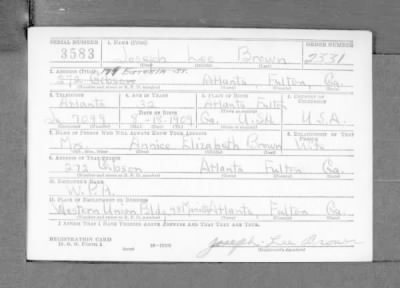 SERIAL NUMBER 1. NAME (Print) ORDER NUMBER
3583 Joseph Lee Brown 2331
(First) (Middle) (Last)
2. ADDRESS (Print) 179 St.
273 Gibson Atlanta Fulton, Ga.
(Number and street or R. F. D. number) (Town) (County) (State)
3. TELEPHONE 4. AGE IN YEARS 5. PLACE OF BIRTH 6. COUNTRY OF CITIZENSHIP
Atlanta 32 Atlanta Fulton
DATE OF BIRTH
7099 8-18-1909 Ga. U.S.A. U.S.A.
7. NAME OF PERSON WHO WILL ALWAYS KNOW YOUR ADDRESS 8. RELATIONSHIP OF THAT PERSON
Mrs. Annice Elizabeth Brown Wife
(Mr., Mrs., Miss) (First) (Middle) (Last)
9. ADDRESS OF THAT PERSON
273 Gibson Atlanta Fulton Ga.
(Number and street or R. F. D. number) (Town) (County) (State)
10. EMPLOYER'S NAME
W.P.A.
11. PLACE OF EMPLOYMENT OR BUSINESS
Western Union Bldg. Atlanta Fulton Ga.
(Number and street or R. F. D. number) (Town) (County) (State)
I AFFIRM THAT I HAVE VERIFIED ABOVE ANSWERS AND THAT THEY ARE TRUE.
REGISTRATION CARD
D. S. S. Form 1 (over) Joseph Lee Brown
(Registrant's signature)